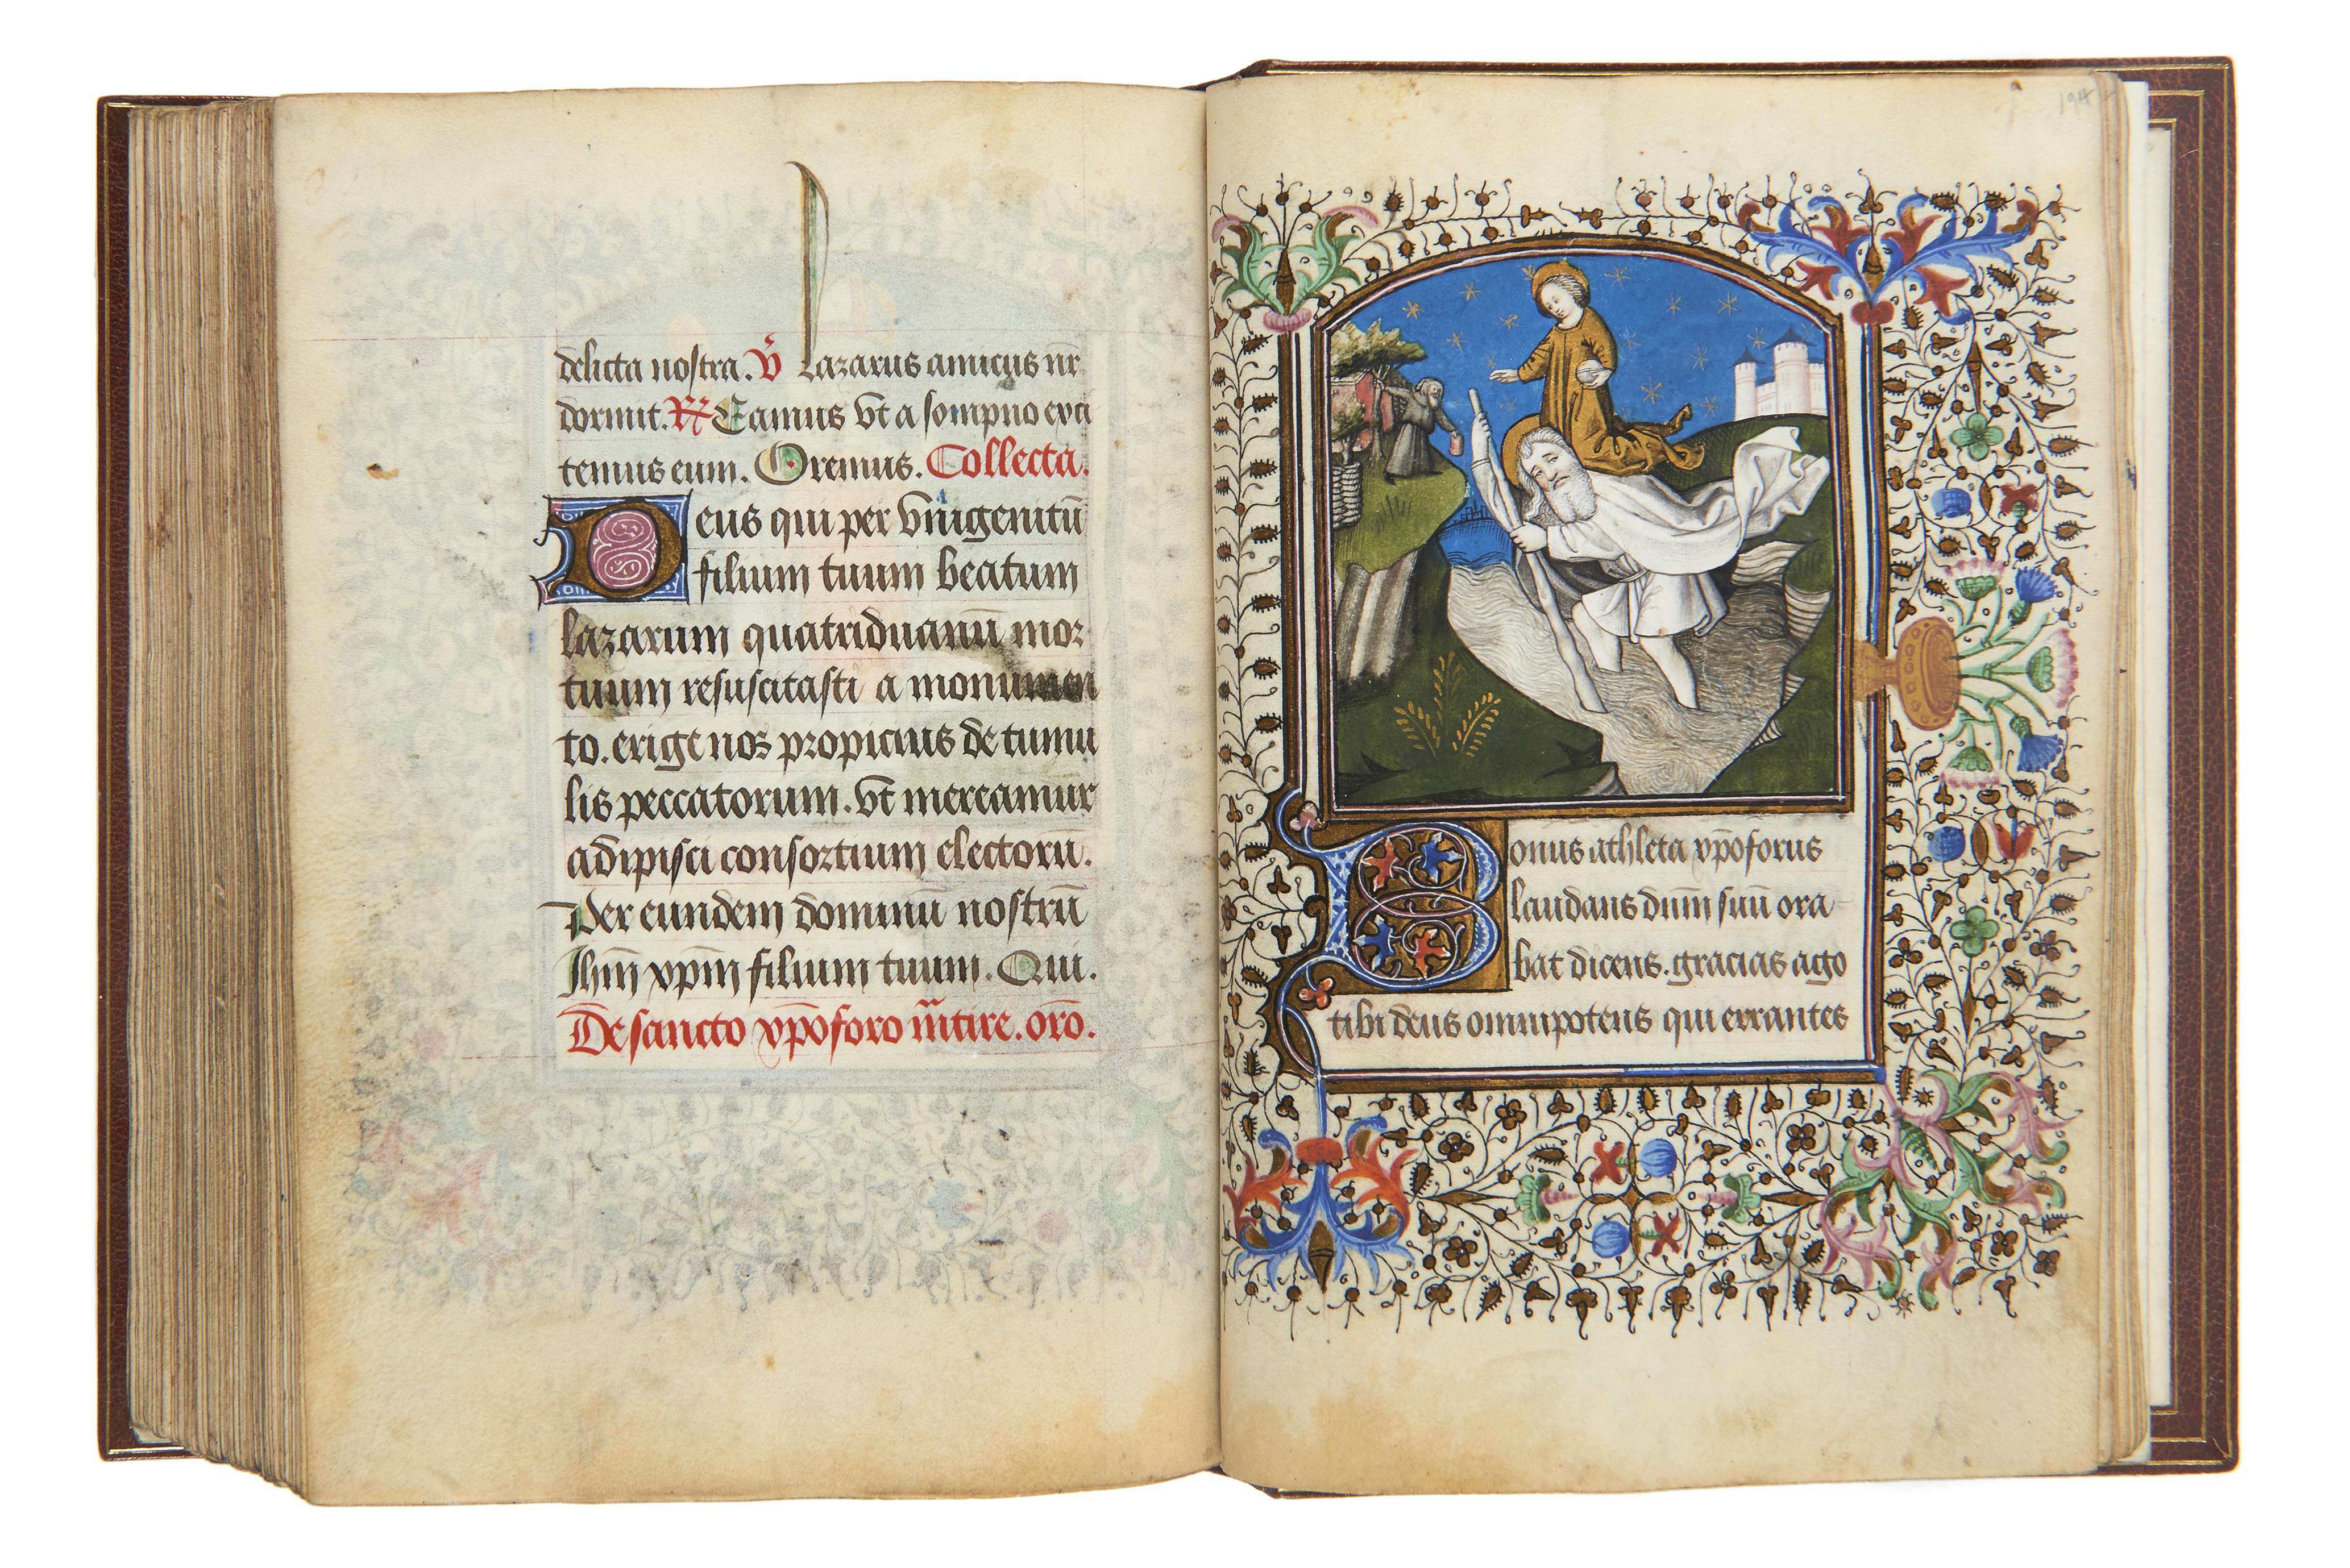 delicta nostra. v̄ Lazarus amicus nr̄
dormit. R̸ Eamus vt a sompno exci
temus eum. Oremus. Collecta.
Deus qui per vnigenitū
filium tuum beatum
lazarum quatriduanū mor
tuum resuscitasti a monumen
to. erige nos propicius de tumu
lis peccatorum. vt mereamur
adipisci consortium electorū.
Per eundem dominū nostrū
Jhm̄ xpm̄ filium tuum. Qui.
De sancto xp̄oforo m̄tire. orō.
194
Bonus athleta xp̄oforus
laudans dnm̄ suū ora
bat dicens. gracias ago
tibi deus omnipotens qui errantes